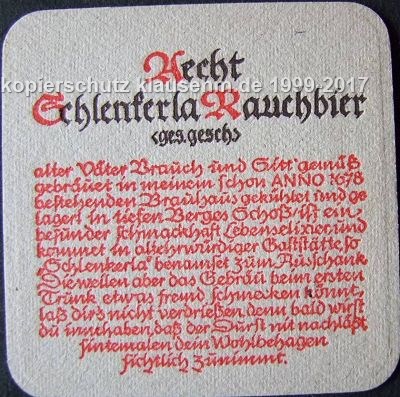 Aecht
kopierschutz klausehm.de 1999-2017
Schlenkerla Rauchbier
<ges.gesch>
alter Väter Brauch und Sitt' gemäß
gebräuet in meinem schon ANNO 1678
bestehenden Brauhaus gekühlet und ge
lagert in tiefen Berges Schoß/ist ein
besunder schmackhaft Lebenselixier und
kommet in altehrwürdiger Gaststätte, so
"Schlenkerla" benamset zum Ausschank
Dieweilen aber das Gebräu beim ersten
Trunk etwas fremd schmecken könnt,
laß dirs nicht verdrießen, denn bald wirst
du innhaben, daß der Durst nit nachläßt
sintemalen dein Wohlbehagen
sichtlich zunimmt.